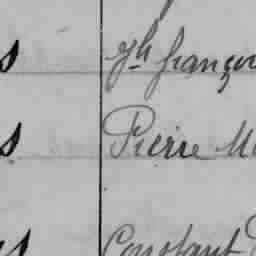 s Jh françois
s Pierre Ma
s Constant